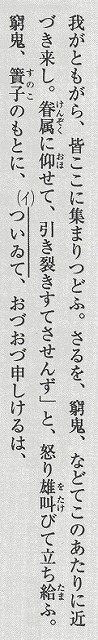 我がともがら、皆ここに集まりつどふ。さるを、窮鬼、などてこのあたりに近
づき来し。眷属に仰せて、引き裂きすてさせんず」と、怒り雄叫びて立ち給ふ。
窮鬼、簀子のもとに、(イ)ついゐて、おづおづ申しけるは、